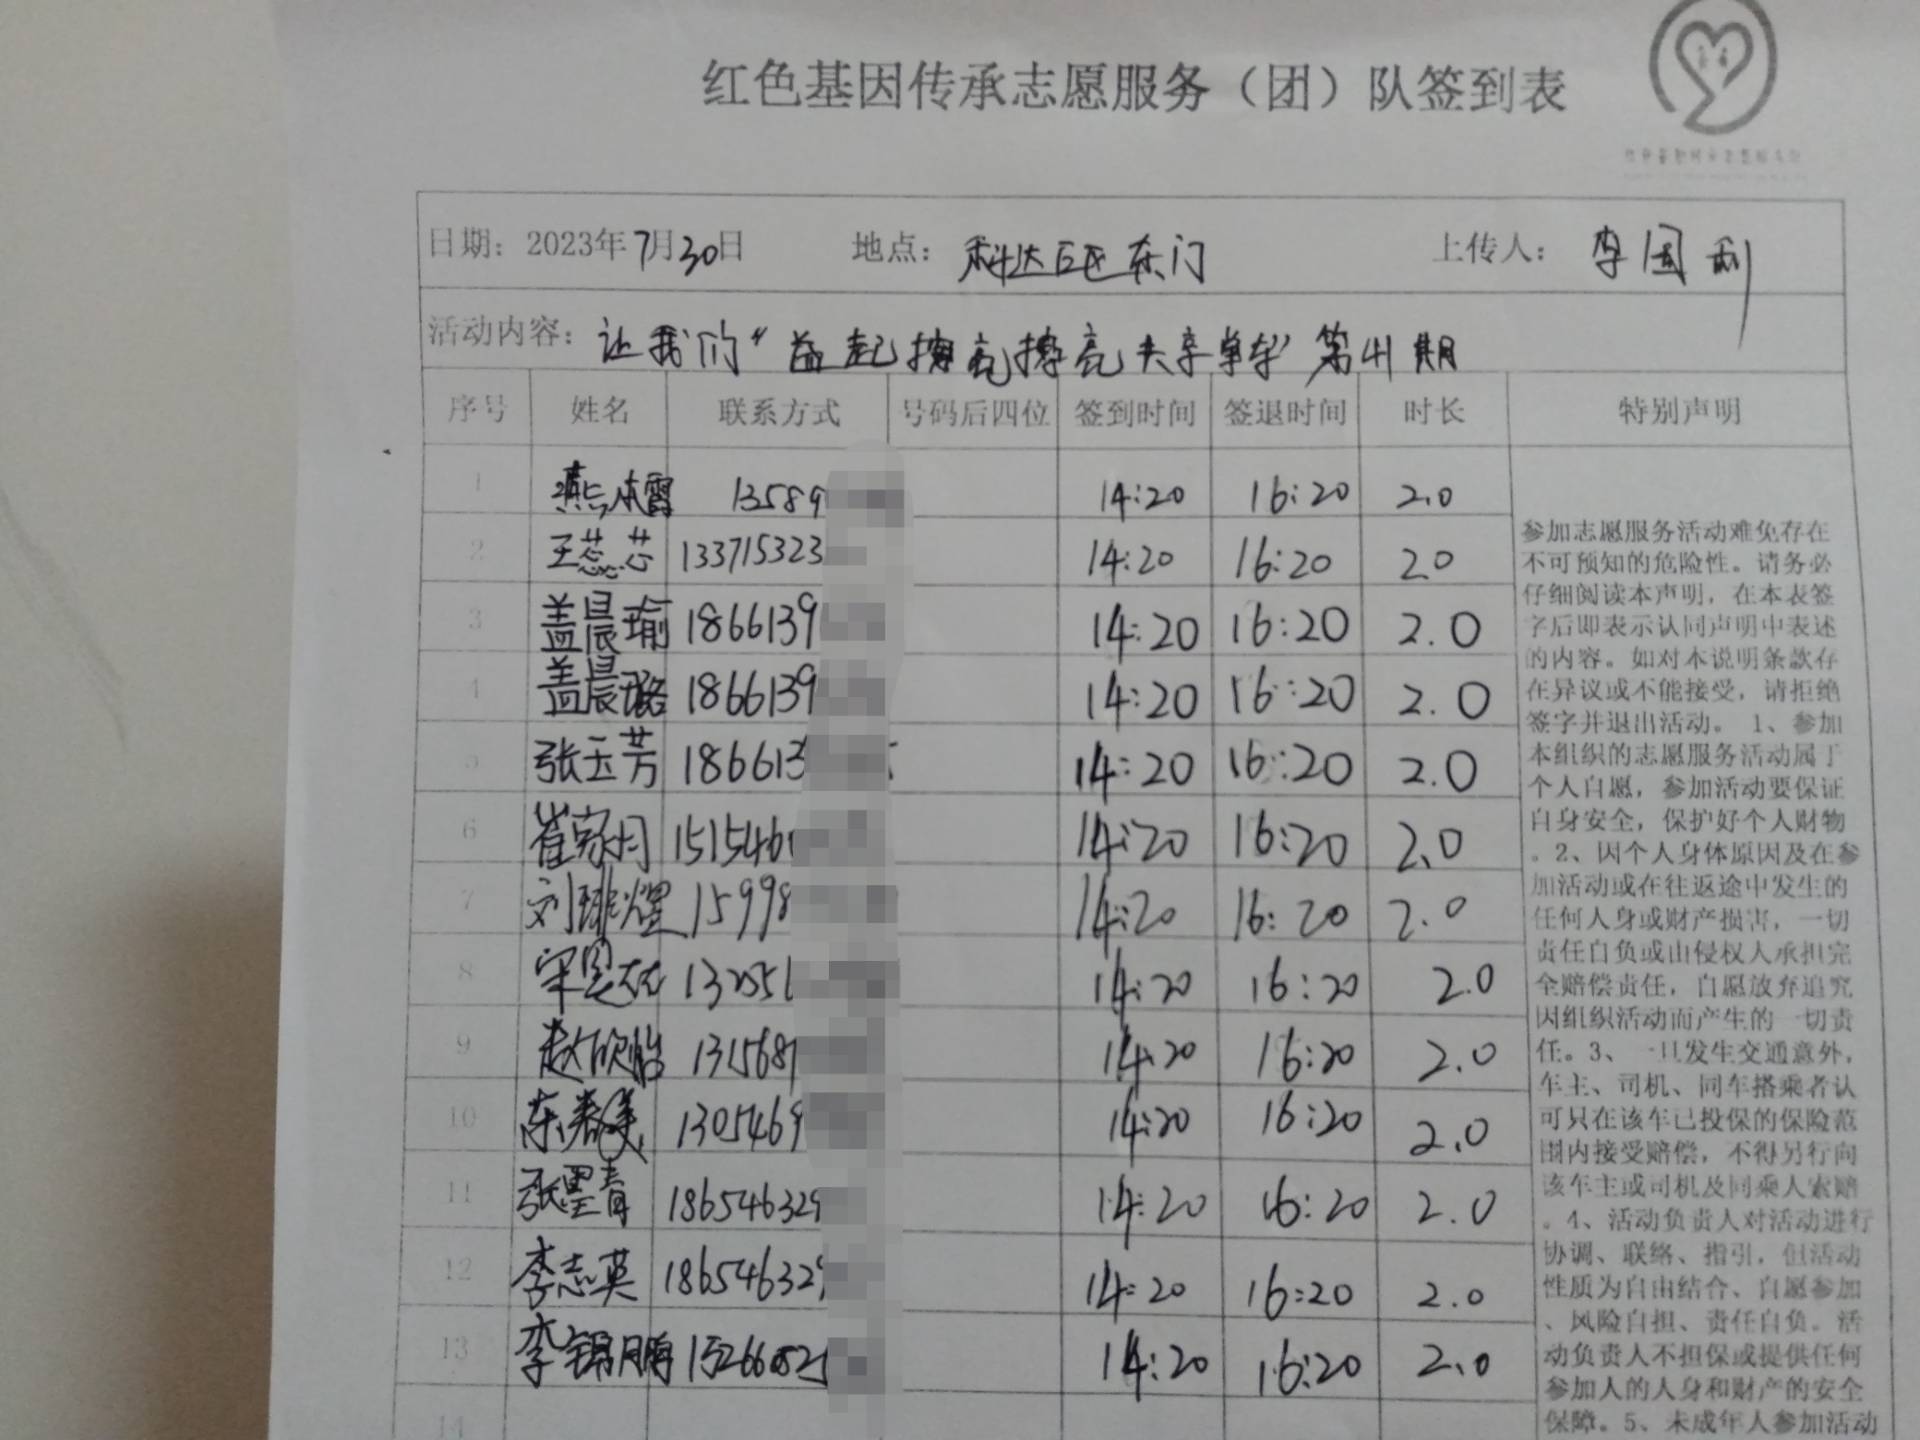 红色基因传承志愿服务（团）队签到表
日期：2023年7月30日 地点：科达 东门 上传人：李国利
活动内容：让我们"益起擦亮擦亮共享单车"第41期
序号 姓名 联系方式 号码后四位 签到时间 签退时间 时长 特别声明
1 燕成霞 13589 14:20 16:20 2.0
2 王蕊芯 133715323 14:20 16:20 20
3 盖晨瑜 1866139 14:20 16:20 2.0
4 盖晨璐 1866139 14:20 16:20 2.0
5 张玉芳 186613 14:20 16:20 2.0
6 崔家月 1515460 14:20 16:20 2.0
7 刘琲煜 15998 14:20 16:20 2.0
8 132551 14:20 16:20 2.0
9 赵欣怡 131568 14:20 16:20 2.0
10 东春美 1305469 14:20 16:20 2.0
11 张墨青 186546329 14:20 16:20 2.0
12 李志英 186546329 14:20 16:20 2.0
13 李锦鹏 152660821 14:20 16:20 2.0
14
参加志愿服务活动难免存在
不可预知的危险性。请务必
仔细阅读本声明，在本表签
字后即表示认同声明中表述
的内容。如对本说明条款存
在异议或不能接受，请拒绝
签字并退出活动。 1、参加
本组织的志愿服务活动属于
个人自愿，参加活动要保证
自身安全，保护好个人财物
。2、因个人身体原因及在参
加活动或在往返途中发生的
任何人身或财产损害，一切
责任自负或由侵权人承担完
全赔偿责任，自愿放弃追究
因组织活动而产生的一切责
任。3、一旦发生交通意外，
车主、司机、同车搭乘者认
可只在该车已投保的保险范
围内接受赔偿，不得另行向
该车主或司机及同乘人索赔
。4、活动负责人对活动进行
协调、联络、指引，但活动
性质为自由结合、自愿参加
、风险自担、责任自负。活
动负责人不担保或提供任何
参加人的人身和财产的安全
保障。5、未成年人参加活动